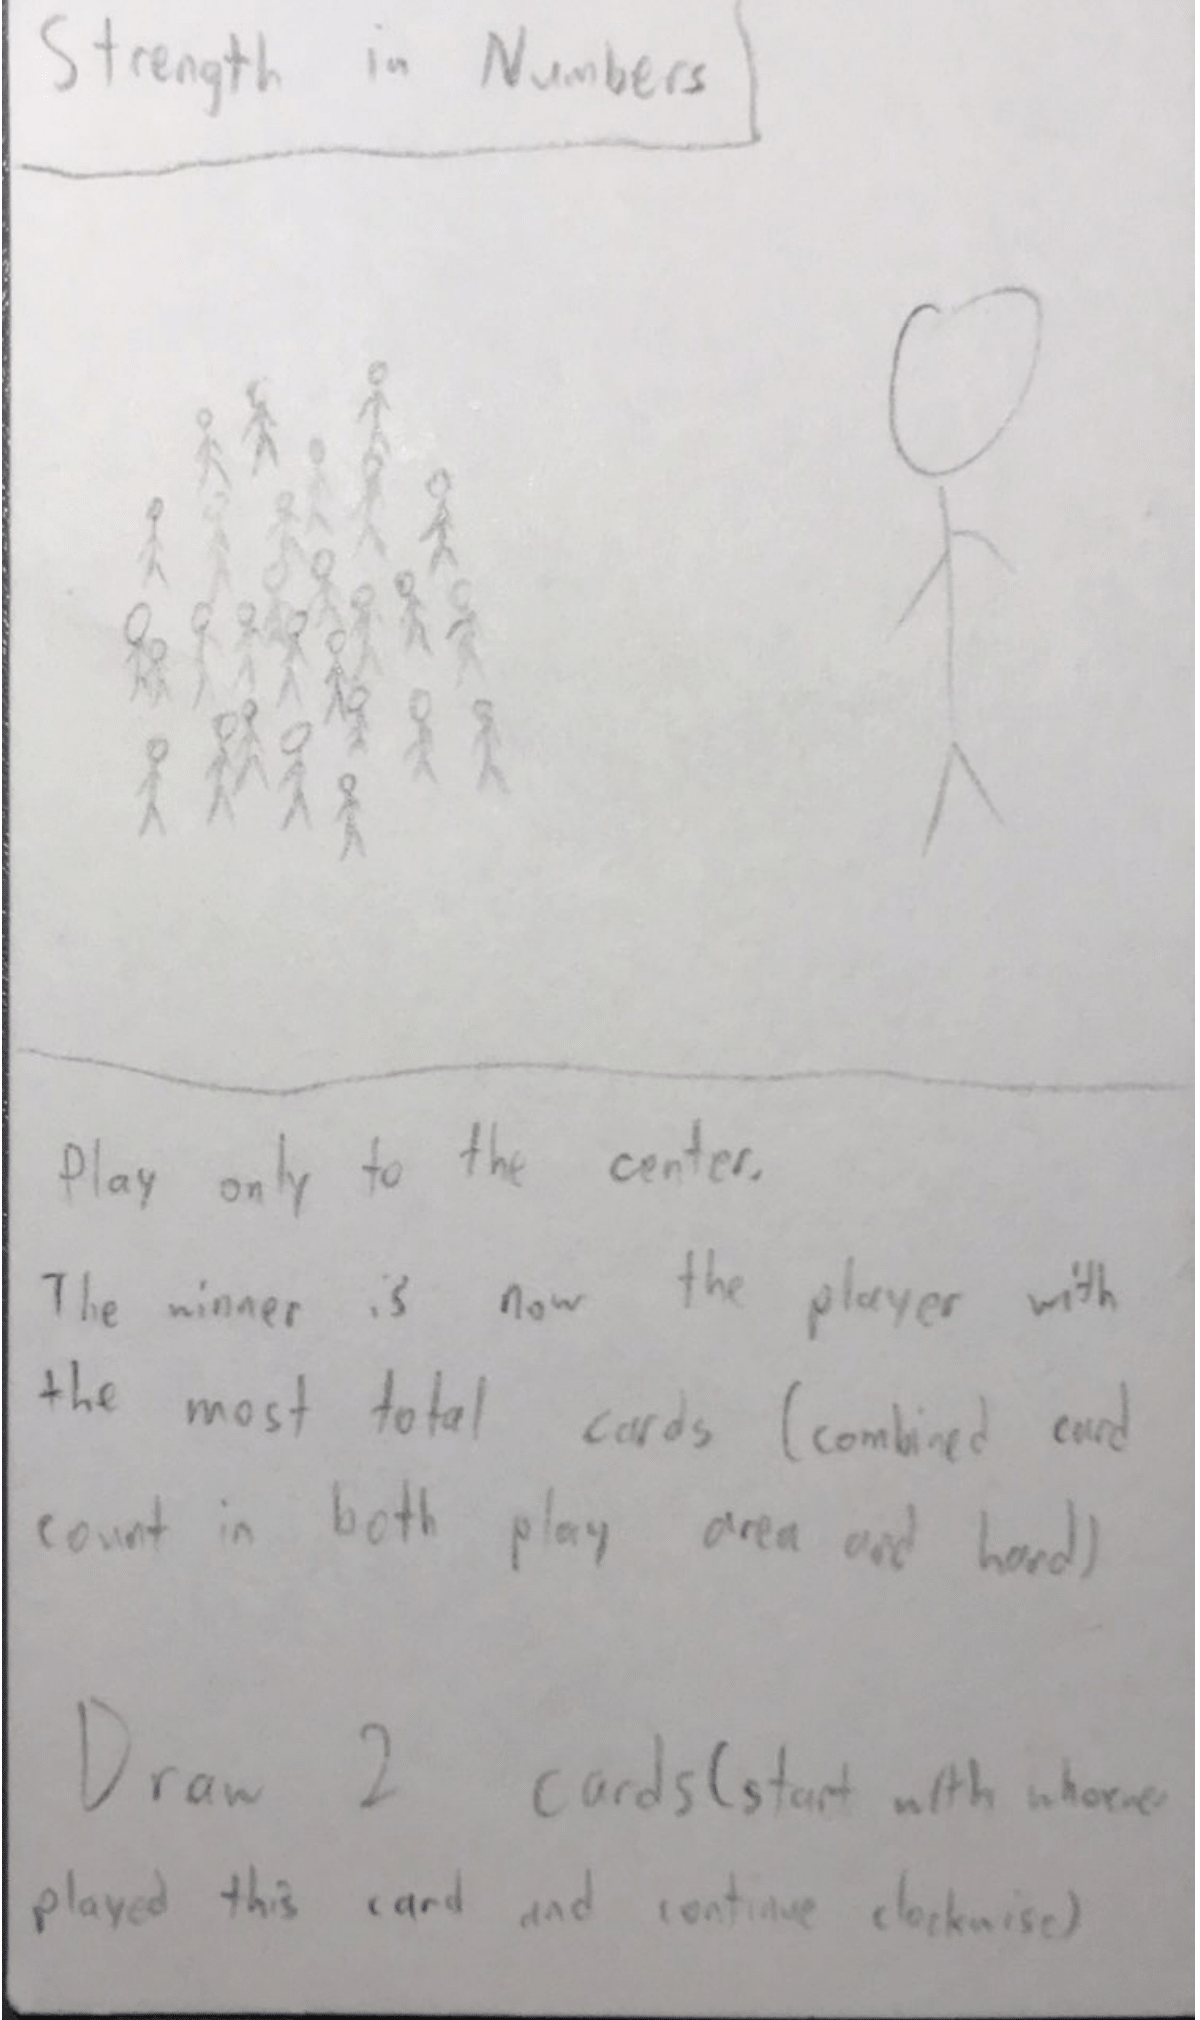 Strength in Numbers
Play only to the center.
The winner is now the player with
the most total cards (combined card
count in both play area and hand)
Draw 2 cards(start with whoever
played this card and continue clockwise)